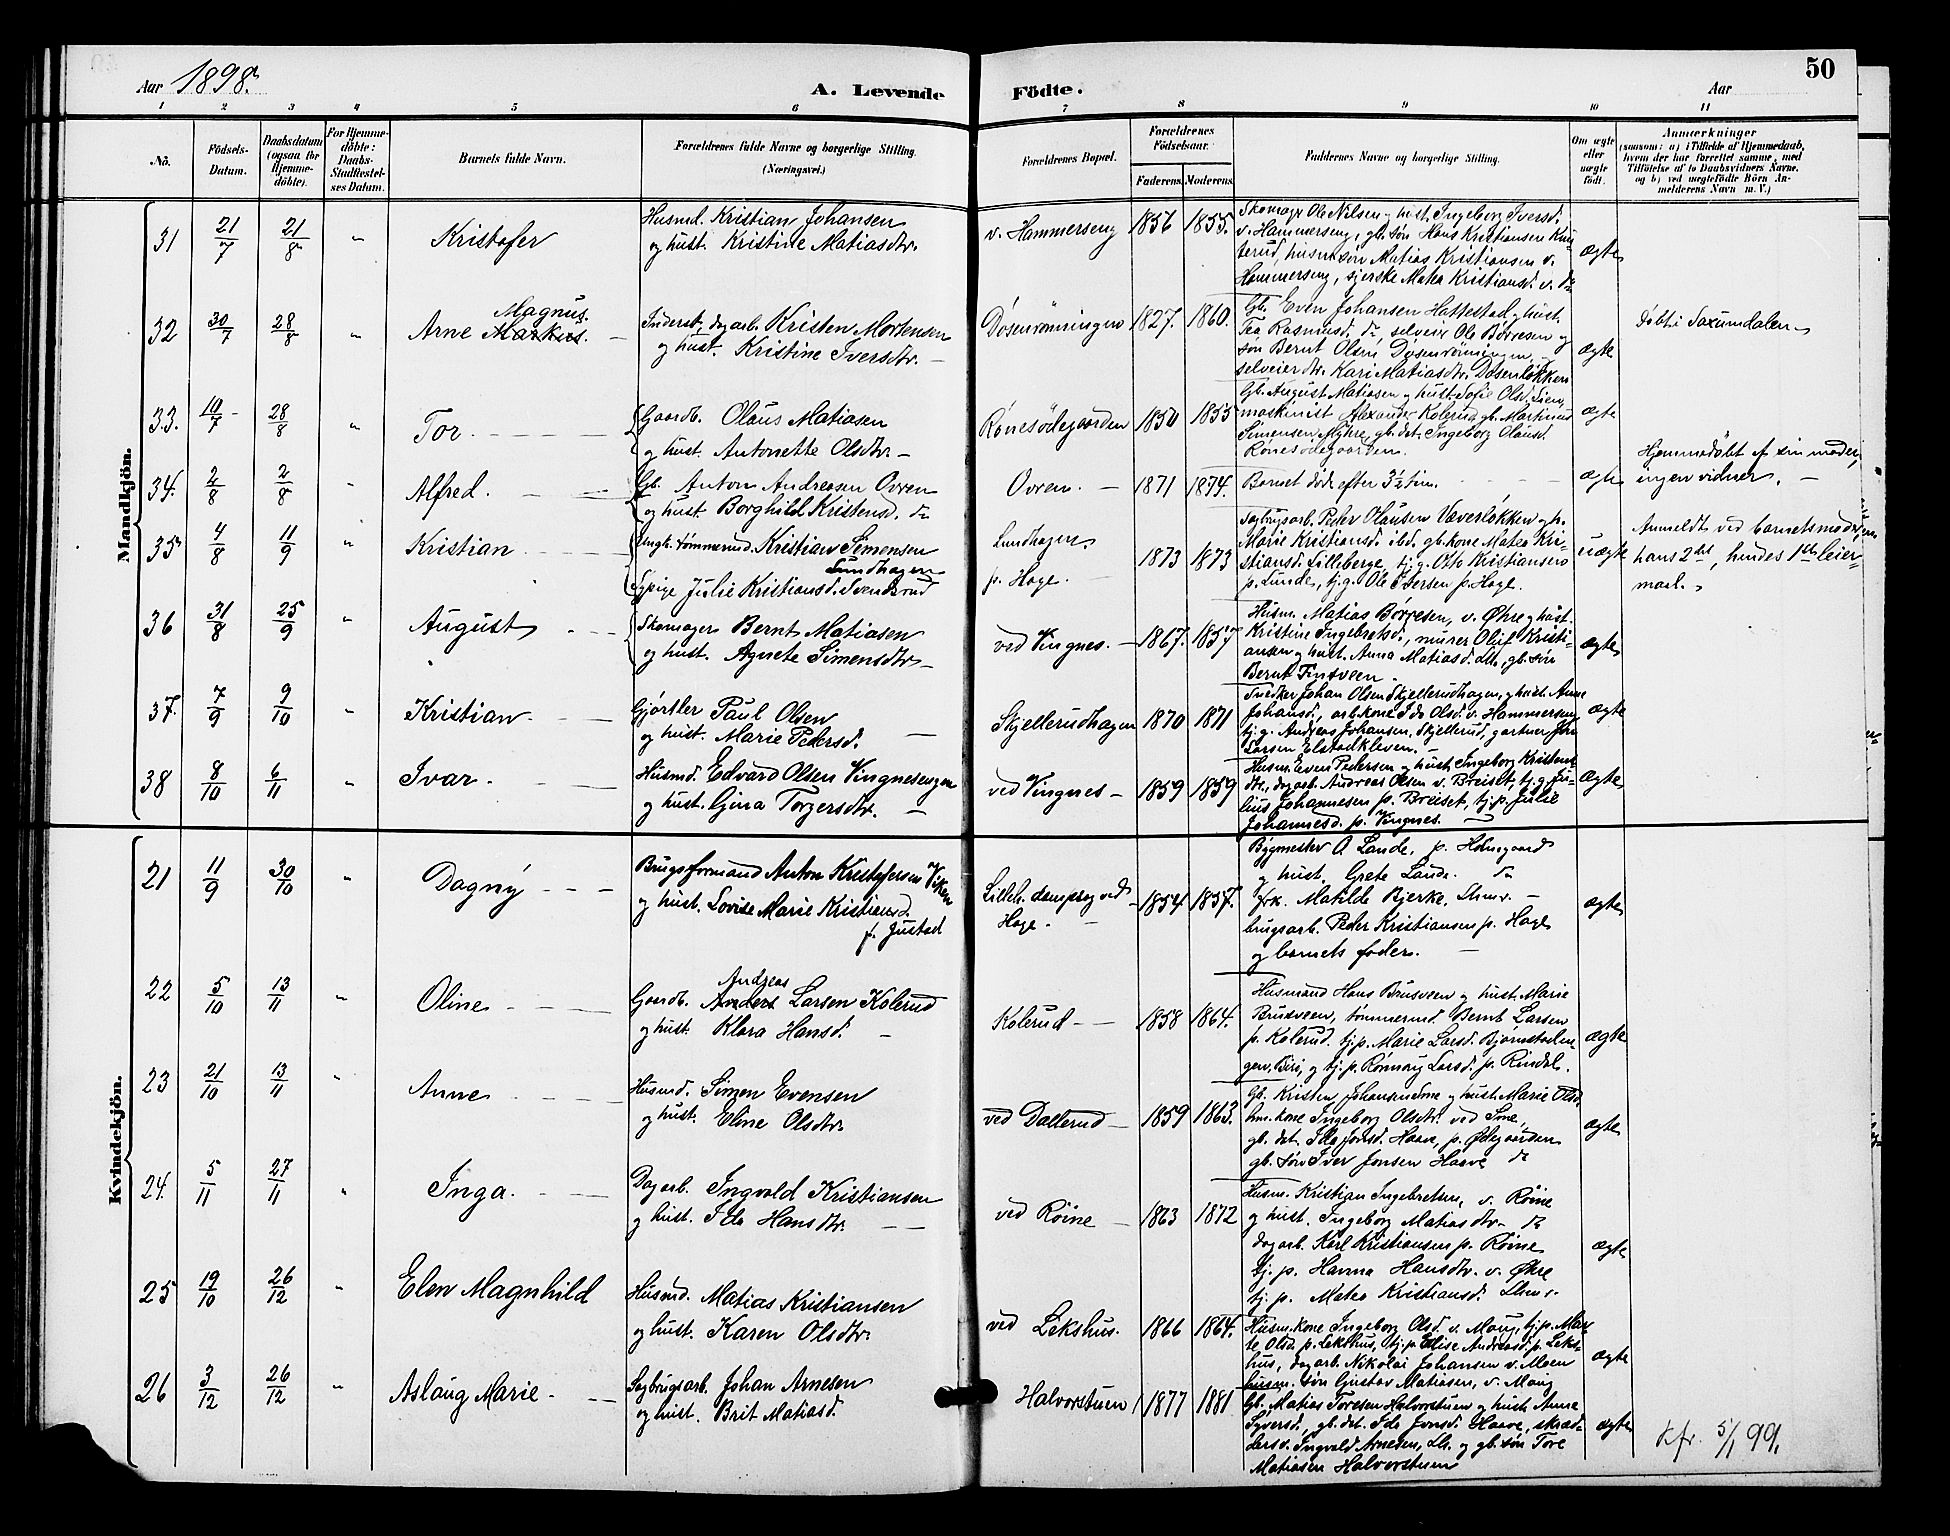 50
Aar 1898.
A. Levende Födte.
Aar
1 2 3 4 5 6 7 8 9 10 11
No. Födsels-Datum. Daabsdatum (ogsaa for Hjemme-döbte). For Hjemme-döbte: Daabs-Stadfæstel-ses Datum. Barnets fulde Navn. Forældrenes fulde Navne og borgerlige Stilling. (Næringsvei.) Forældrenes Bopæl. Forældrenes Födselsaar. Faderens. Moderens. Faddernes Navne og borgerlige Stilling. Om ægte eller uægte födt. Anmærkninger (saasom: a) i Tilfælde af Hjemmedaab, hvem der har forrettet samme, med Tilföielse af to Daabsvidners Navne, og b) ved uægtefödte Börn An-melderens Navn m. V.)
Mandkjön.
31 21/7 21/8 " Kristofer
Husmd. Kristian Johansen
og hust. Kristine Matiasdtr.
v. Hammerseng 1856 1855.
Skomagr Ole Nilsen og hust. Ingeborg Iversd.
v. Hammerseng, gb. søn Hans Kristiansen
terud, husm. søn Matias Kristiansen v.
Hammerseng, syerske Matea Kristiansd. v. do
ægte
32 30/7 28/8 " Arne Markus. Magnus.
Inderst, dagarb. Kristen Mortensen
og hust. Kristine Iversdtr.
Døsenrønningen 1827. 1860.
Gb. Even Johansen Hattestad og hust.
Tea Rasmusd. do, selveier Ole Børresen og
søn Bernt Olsen Døsenrønningen,
selveierdtr. Kari Matiasdtr. Døsenløkken
ægte
Døbt i Saxumdalen
33. 10/7 28/8 " Tor.
Gaardb. Olaus Matiasen
og hust. Antonette Olsdtr.
Rønesødegaarden 1850 1855
Gb. August Matiasen og hust. Sofie Olsd. Lien,
maskinist Alexander Kolerud, gb. Martinus
Simensen Myhre, gb. det. Ingeborg Olausd.
Rønesødegaarden.
ægte
34. 2/8 2/8 " Alfred.
Gb. Anton Andreasen Ovren
og hust. Borghild Kristensd. do
Ovren. 1871 1874.
Barnet døde efter 3½ tim.
ægte
Hjemmedøbt af sin moder,
ingen vidner.
35 4/8 11/9 " Kristian
Ungk. tømmermd. Kristian Simensen
Lundhagen
og pige Julie Kristiansd. Svendsrud
Lundhagen,
p. Hage. 1873 1873
Sagbrugsarb. Peder Olausen Væverløkken og h.
Marie Kristiansd. ibd. gb. kone Matea Kri-
stiansd. Lilleberge, tj.g. Otto Kristiansen
p. Lunde, tj.g. Ole Iversen p. Hage.
uægte
Anmeldt ved barnets moder,
hans 2det, hendes 1ste leier-
maal.
36 31/8 25/9 " August
Skomager Bernt Matiasen
og hust. Agnete Simensdtr.
ved Vingnes. 1867. 1857
Husm. Matias Børresen, v. Øhre og hust.
Kristine Ingebretsd., murer Oluf Kristi-
ansen og hust. Anna Matiasd. Lhr., gb. søn
Bernt Tindveen.
ægte
37. 7/9 9/10 " Kristian.
Gjørtler Paul Olsen
og hust. Marie Pedersd.
Skjellerudhagen 1870 1871
Snedker Johan Olsen Skjellerudhagen, og hust. Anne
Johansd., arb. kone Ida Olsd. v. Hammerseng
tj.g. Andreas Johansen, Skjellerud, gartner
Larsen Elstadkleven.
ægte
38 8/10 6/11 " Ivar.
Husmd. Edvard Olsen Vingnesengen
og hust. Gina Torgersdtr.
ved Vingnes 1859 1859
Husm. Even Pedersen og hust. Ingeborg Kristens-
dtr., dagarb. Andreas Olsen v. Breiset, tj.g. Ju-
lius Johannesen p. Breiset, tj.p. Julie
Johannesd. p. Vingnes.
ægte
Kvindekjön.
21 11/9 30/10 " Dagny
Brugsformand Anton Kristofersen Viken
og hust. Lovise Marie Kristiansd.
f. Justad
Lilleh. dampsag ved
Hage. 1854 1857.
Bygmester A. Lande, p. Holmgaard
og hust. Grete Lande. do
frk. Matilde Bjerke, Lhmr.
brugsarb. Peder Kristiansen p. Hage
og barnets fader.
ægte
22 5/10 13/11 " Oline
Andreas
Gaardb. Anders Larsen Kolerud
og hust. Klara Hansd.
Kolerud 1858 1864.
Husmand Hans Brusveen og hust. Marie
Brusveen, tømmermd. Bernt Larsen
p. Kolerud, tj.p. Marie Larsd. Bjørnstaden-
gen, Biri, og tj.p. Rønnaug Larsd. p. Rindal.
ægte
23 21/10 13/11 " Anne
Husmd. Simen Evensen
og hust. Eline Olsdtr.
ved Dallerud 1859 1863.
Gb. Kristen Johansen Sme og hust. Marie Olsd.
hm. kone Ingeborg Olsdtr. ved Sme,
gb. det. Ida Jonsd. Haave, p. Ødegaarden
gb. søn Iver Jonsen Haave do
ægte
24. 5/11 27/11 " Inga.
Dagarb. Ingvald Kristiansen
og hust. Ida Hansdtr.
ved Røine 1863 1872
Husm. Kristian Ingebretsen, v. Røine
og hust. Ingeborg Matiasdtr. do
dagarb. Karl Kristiansen p. Røine
tj.p. Hanna Hansdtr. v. Øhre
tj.p. Matea Kristiansd. Lhmr.
ægte
25 19/10 26/12 " Elen Magnhild
Husmd. Matias Kristiansen
og hust. Karen Olsdtr.
ved Lekshus. 1866 1864.
Husm. kone Ingeborg Olsd. v. Maug, tj.p. Mar-
te Olsd. p. Lekshus, tj.p. Elise Andreasd. p. Leks-
hus, dagarb. Nikolai Johansen v. Moen
husm. søn Gustav Matiasen, v. Maug
ægte
26 3/12 26/12 " Aslaug Marie
Sagbrugsarb. Johan Arnesen
og hust. Brit Matiasd.
Halvorstuen 1877 1881
Gb. Matias Toresen Halvorstuen og hust. Anne
Syversd., gb. det. Ida Jonsd. Haave, skræd-
dersv. Ingvald Arnesen, Lh. og gb. søn Tore
Matiasen Halvorstuen
ægte
Kfr. 5/1 99.